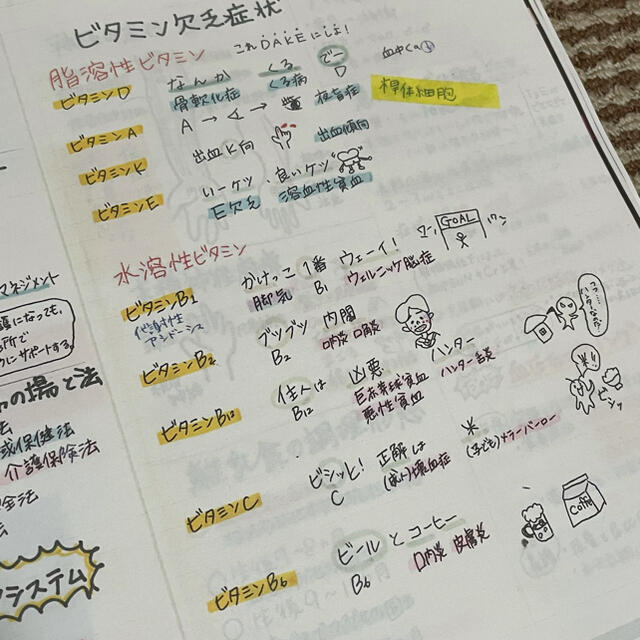 ビタミン欠乏症状
これDAKEにしよ!
脂溶性ビタミン
ビタミンD
なんか くる でー
D
骨軟化症 くる病
血中Ca
ビタミンA
A → ∢ →
夜盲症
桿体細胞
ビタミンK
出血K向
出血傾向
ビタミンE
いーケツ 良いケツ
E欠乏 溶血性貧血
水溶性ビタミン
ビタミンB1
かけっこ 1番 ウェーイ!
脚気 B1 ウェルニッケ脳症
GOAL
代謝性
アシドーシス
ビタミンB2
ブツブツ 内胸
B2 口内炎 口角炎
ビタミンB12
住人は 凶悪 ハンター
B12 巨赤芽球貧血 ハンター舌炎
悪性貧血
ビタミンC
ビシッと! 正解は
C (成人)壊血症 (子ども)メラーバーロー
ビタミンB6
ビール と コーヒー
B6 口内炎 皮膚炎
マネジメント
護になっても、
所で
うにサポートする。
の場と法
法
域保健法
介護保険法
全法
法
システム